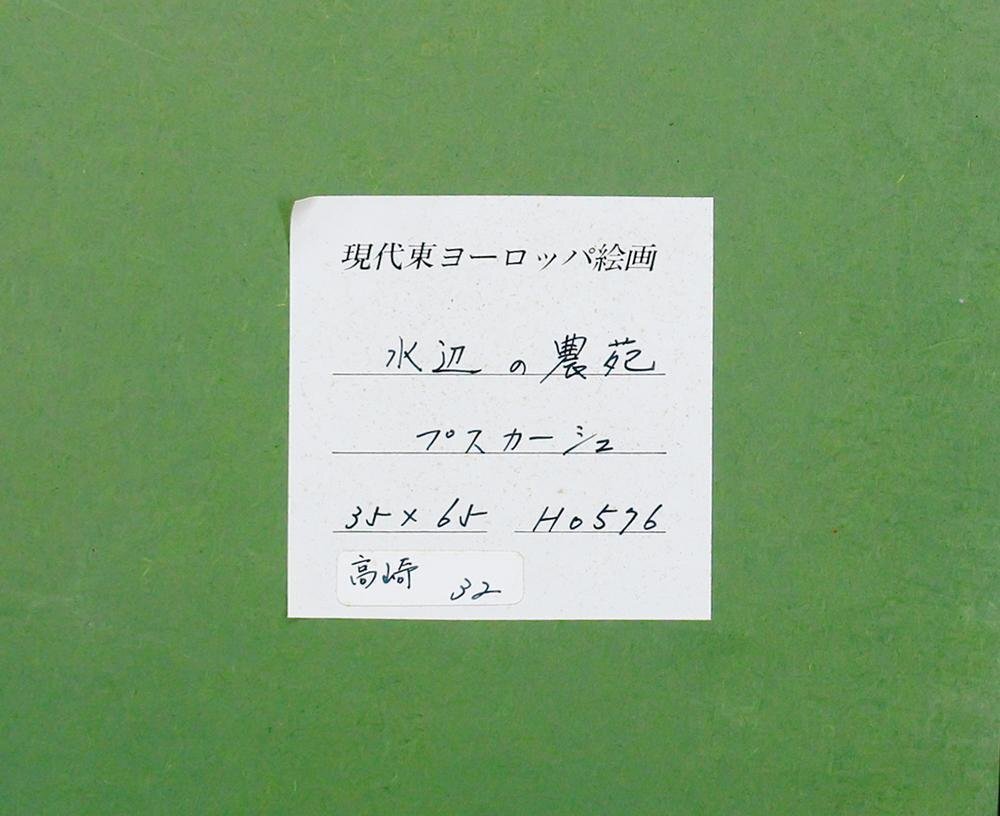 現代東ヨーロッパ絵画
水辺の農苑
プスカーシュ
35×65 H0576
高崎 32